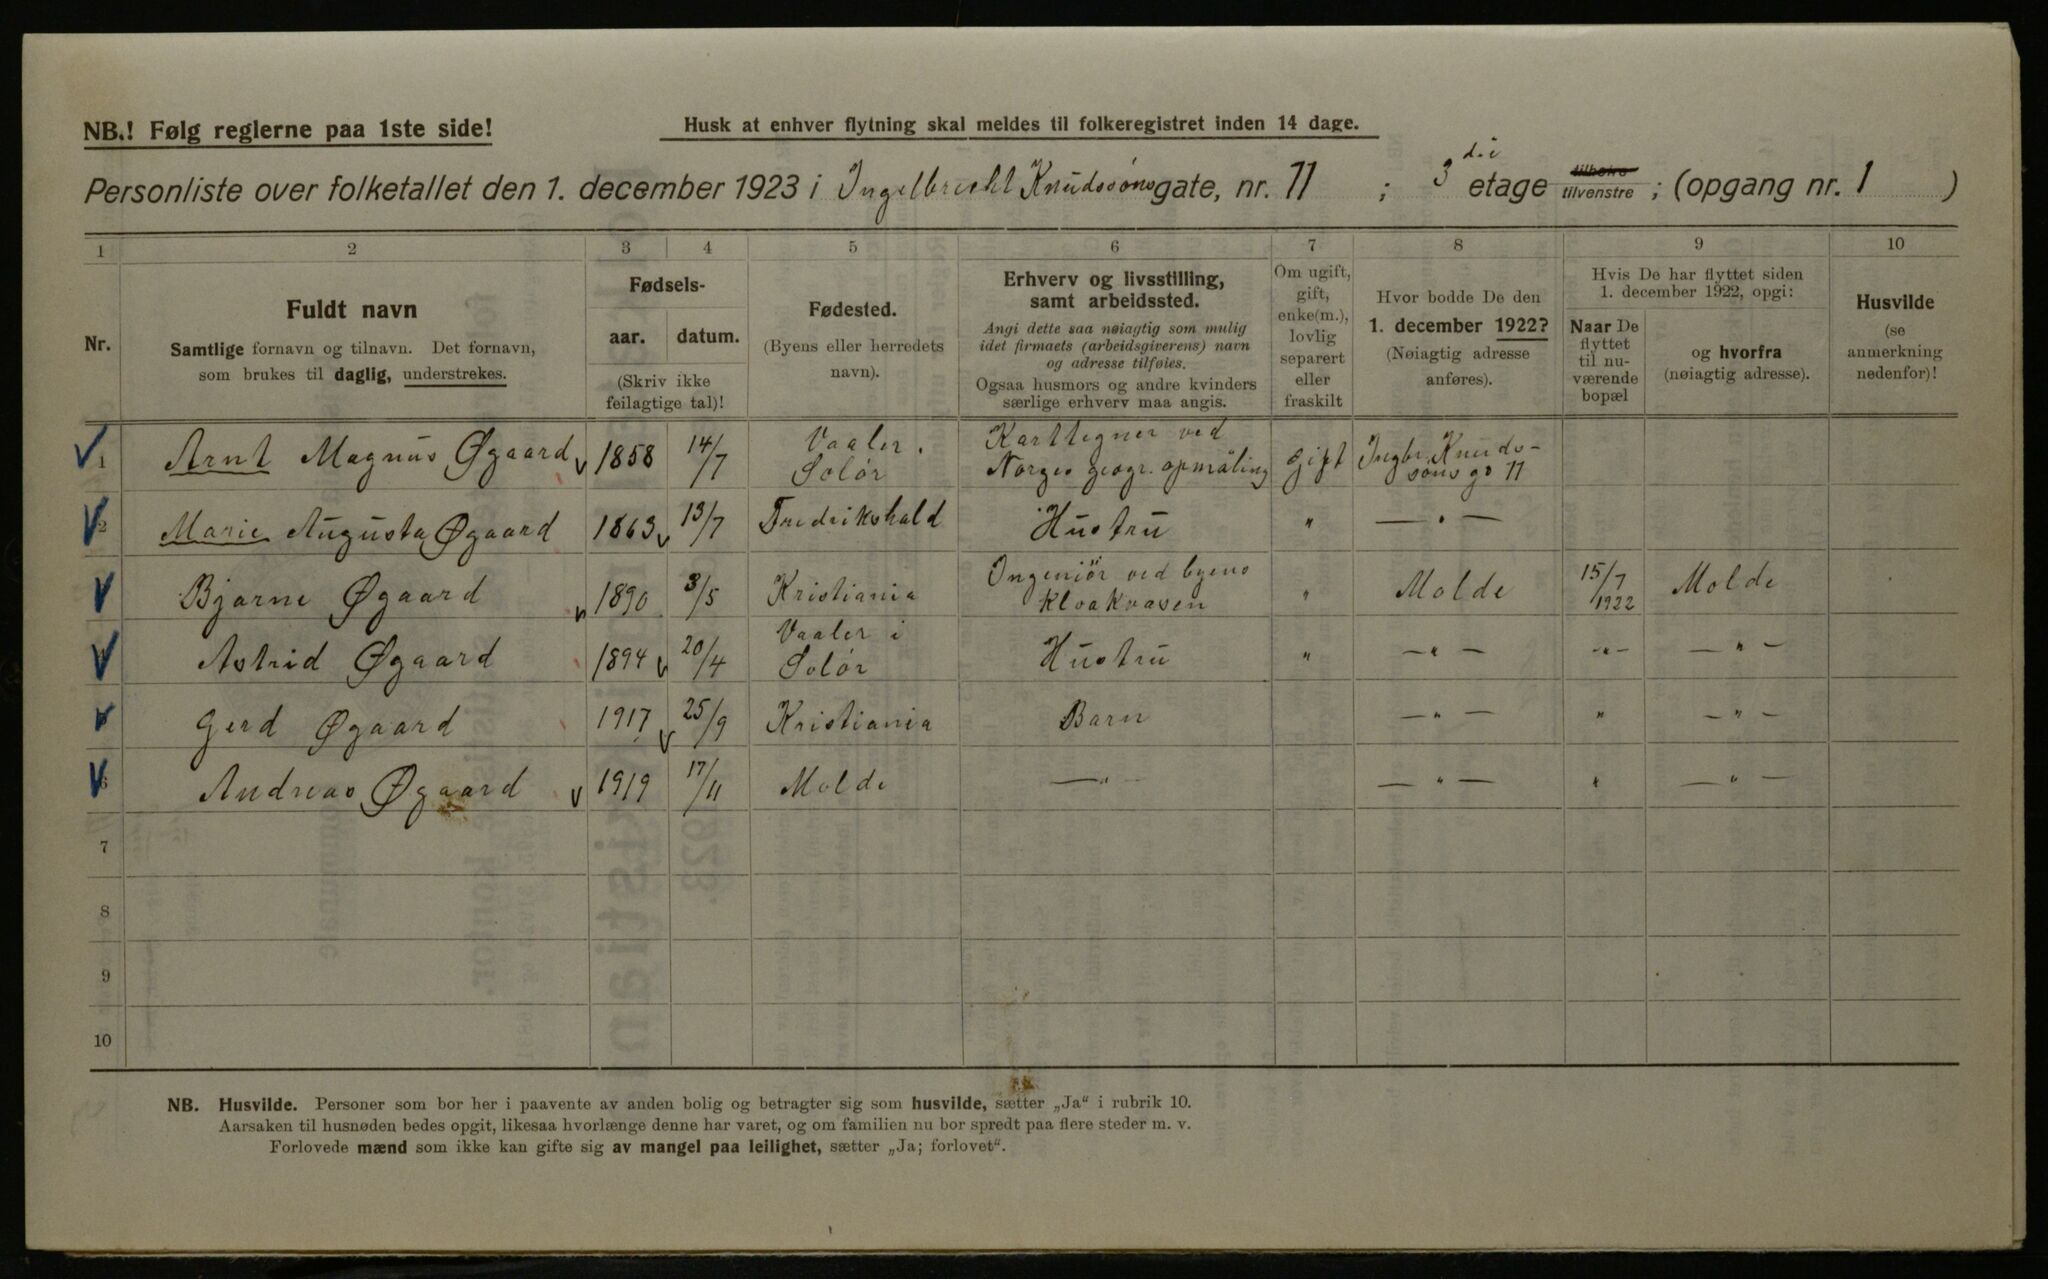 NB.! Følg reglerne paa 1ste side!
Husk at enhver flytning skal meldes til folkeregistret inden 14 dage.
Personliste over folketallet den 1. december 1923 i Ingelbrecht Knudssöns gate, nr. 11 ; 3 die etage tilhøire tilvenstre ; (opgang nr. 1 )
1 2 3 4 5 6 7 8 9 10
Nr.
Fuldt navn
Samtlige fornavn og tilnavn. Det fornavn,
som brukes til daglig, understrekes.
Fødsels-
aar. datum.
(Skriv ikke
feilagtige tal)!
Fødested.
(Byens eller herredets
navn).
Erhverv og livsstilling,
samt arbeidssted.
Angi dette saa nøiagtig som mulig
idet firmaets (arbeidsgiverens) navn
og adresse tilføies.
Ogsaa husmors og andre kvinders
særlige erhverv maa angis.
Om ugift,
gift,
enke(m.),
lovlig
separert
eller
fraskilt
Hvor bodde De den
1. december 1922?
(Nøiagtig adresse
anføres).
Hvis De har flyttet siden
1. december 1922, opgi:
Naar De
flyttet
til nu-
værende
bopæl
og hvorfra
(nøiagtig adresse).
Husvilde
(se
anmerkning
nedenfor)!
1 Arnt Magnus Øgaard 1858 14/7 Vaaler. Solør Karttegner ved Norges geogr. opmåling gift Ingbr. Knuds-söns g. 11
2 Marie Augusta Øgaard 1863 13/7 Fredrikshald Hustru " — " —
Bjarne Øgaard 1890 3/5 Kristiania Ingeniör ved byens kloakvæsen " Molde 15/7 1922 Molde
Astrid Øgaard 1894 20/4 Vaaler i Solör Hustru " — " — — " — — " —
Gerd Øgaard 1917 25/9 Kristiania Barn — " — " — " —
6 Andreas Øgaard 1919 17/11 Molde — " — — " — " — " —
7
8
9
10
NB. Husvilde. Personer som bor her i paavente av anden bolig og betragter sig som husvilde, sætter „Ja“ i rubrik 10.
Aarsaken til husnøden bedes opgit, likesaa hvorlænge denne har varet, og om familien nu bor spredt paa flere steder m. v.
Forlovede mænd som ikke kan gifte sig av mangel paa leilighet, sætter „Ja; forlovet“.